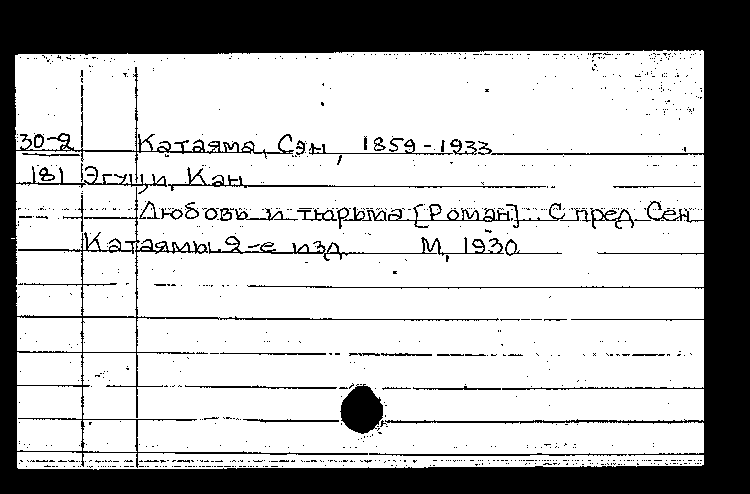 30-2 Катаяма, Сэн, 1859-1933
181 Эгущи, Кан.
Любовь и тюрьма [Роман].. С пред. Сен
Катаямы. 2-е изд. М, 1930